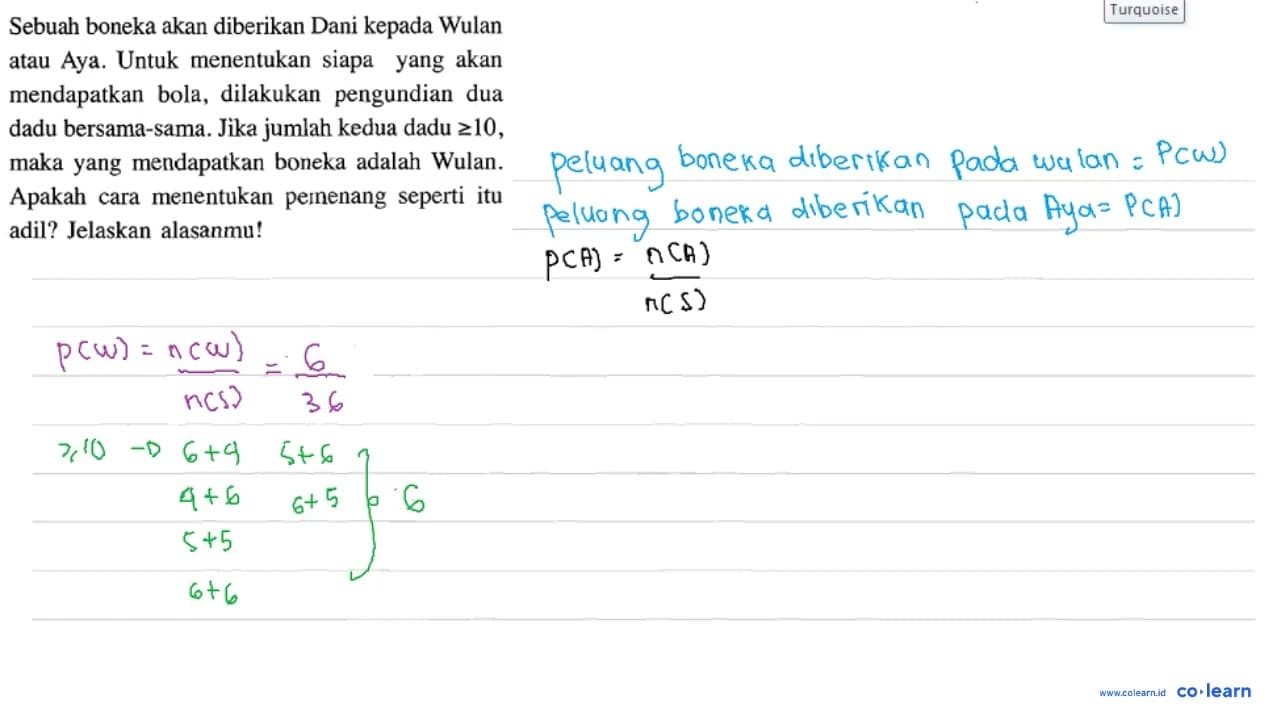 Turquoise
Sebuah boneka akan diberikan Dani kepada Wulan
atau Aya. Untuk menentukan siapa yang akan
mendapatkan bola, dilakukan pengundian dua
dadu bersama-sama. Jika jumlah kedua dadu ≥10,
maka yang mendapatkan boneka adalah Wulan.
Apakah cara menentukan pemenang seperti itu
adil? Jelaskan alasanmu!
peluang boneka diberikan pada wulan = P(W)
peluang boneka diberikan pada Aya = P(A)
P(A) = n(A)
n(S)
P(W) = n(W) = 6
n(S) 36
≥10 → 6+4 5+6
4+6 6+5 6
5+5
6+6
www.colearn.id co·learn